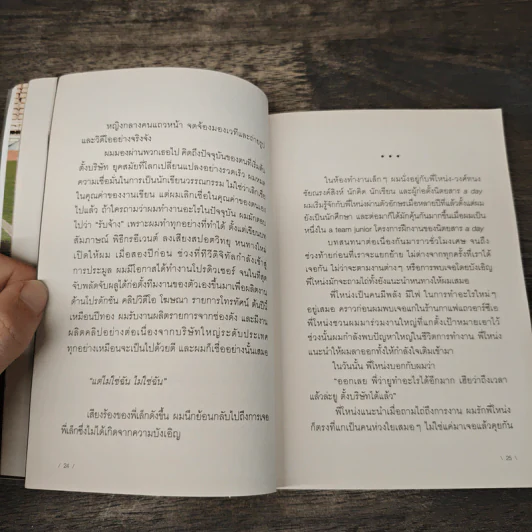 หญิงกลางคนแถวหน้า จดจ้องมองเวทีและถ่ายรูป
และวิดีโออย่างจริงจัง
ผมมองผ่านพวกเธอไป คิดถึงปัจจุบันของตนที่เริ่มต้น
ตั้งบริษัท ยุคสมัยที่โลกเปลี่ยนแปลงอย่างรวดเร็ว ผมหมด
ความเชื่อมั่นในการเป็นนักเขียนวรรณกรรม ไม่ใช่ว่าเลิกเชื่อ
ในคุณค่าของงานเขียน แต่ผมเลิกเชื่อในคุณค่าของตนเอง
ไปแล้ว ถ้าใครถามว่าผมทำงานอะไรในปัจจุบัน ผมมักตอบ
ไปว่า "รับจ้าง" เพราะผมทำทุกอย่างที่ทำได้ ตั้งแต่เขียนบท
สัมภาษณ์ พิธีกรอีเวนต์ ลงเสียงสปอตวิทยุ หนทางใหม่
เปิดให้ผม เมื่อสองปีก่อน ช่วงที่ทีวีดิจิทัลกำลังเข้าสู่
การประมูล ผมมีโอกาสได้ทำงานโปรดิวเซอร์ จนในที่สุด
จับพลัดจับผลูได้ก่อตั้งทีมงานของตนเองขึ้นมาเพื่อผลิตงาน
ด้านโปรดักชัน คลิปวิดีโอ โฆษณา รายการโทรทัศน์ ต้นปีนี้
เหมือนปีทอง ผมรับงานผลิตรายการจากช่องดัง และมีงาน
ผลิตคลิปอย่างต่อเนื่องจากบริษัทใหญ่ระดับประเทศ
ทุกอย่างเหมือนจะเป็นไปด้วยดี และผมก็เชื่ออย่างนั้นเสมอ
"แต่ไม่ใช่ฉัน ไม่ใช่ฉัน"
เสียงร้องของพี่เล็กดังขึ้น ผมนึกย้อนกลับไปถึงการเจอ
พี่เล็กซึ่งไม่ได้เกิดจากความบังเอิญ
/ 24 /
* * *
ในห้องทำงานเล็กๆ ผมนั่งอยู่กับพี่โหน่ง-วงศ์ทนง
ชัยณรงค์สิงห์ นักคิด นักเขียน และผู้ก่อตั้งนิตยสาร a day
ผมเริ่มรู้จักกับพี่โหน่งผ่านตัวอักษรเมื่อหลายปีแล้วตั้งแต่ผม
ยังเป็นนักศึกษา และต่อมาก็ได้มักคุ้นกันมากขึ้นเมื่อผมเป็น
หนึ่งใน a team junior โครงการฝึกงานของนิตยสาร a day
บทสนทนาต่อเนื่องกันมาราวชั่วโมงเศษ จนถึง
ช่วงท้ายก่อนที่เราจะแยกย้าย ไม่ต่างจากทุกครั้งที่เราได้
เจอกัน ไม่ว่าจะตามงานต่างๆ หรือการพบเจอโดยบังเอิญ
พี่โหน่งมักจะถามไถ่ทั้งยังแนะนำหนทางให้ผมเสมอ
พี่โหน่งเป็นคนมีพลัง มีไฟ ในการทำอะไรใหม่ๆ
อยู่เสมอ คราวก่อนผมพบเจอแกในร้านกาแฟแถวอารีย์เอง
พี่โหน่งชวนผมมาร่วมงานใหญ่ที่แกตั้งเป้าหมายเอาไว้
ช่วงนั้นผมกำลังพบปัญหาใหญ่ในชีวิตการทำงาน พี่โหน่ง
แนะนำให้ผมลาออกทั้งให้กำลังใจเติมเข้ามา
ในวันนั้น พี่โหน่งบอกกับผมว่า
"ออกเลย พี่ว่ายูทำอะไรได้อีกมาก เฮียว่าถึงเวลา
แล้วล่ะยู ตั้งบริษัทได้แล้ว"
พี่โหน่งแนะนำเมื่อถามไถ่ถึงการงาน ผมรักพี่โหน่ง
ก็ตรงที่แกเป็นคนห่วงใยเสมอๆ ไม่ใช่แค่มาเจอแล้วคุยกัน
\ 25 \